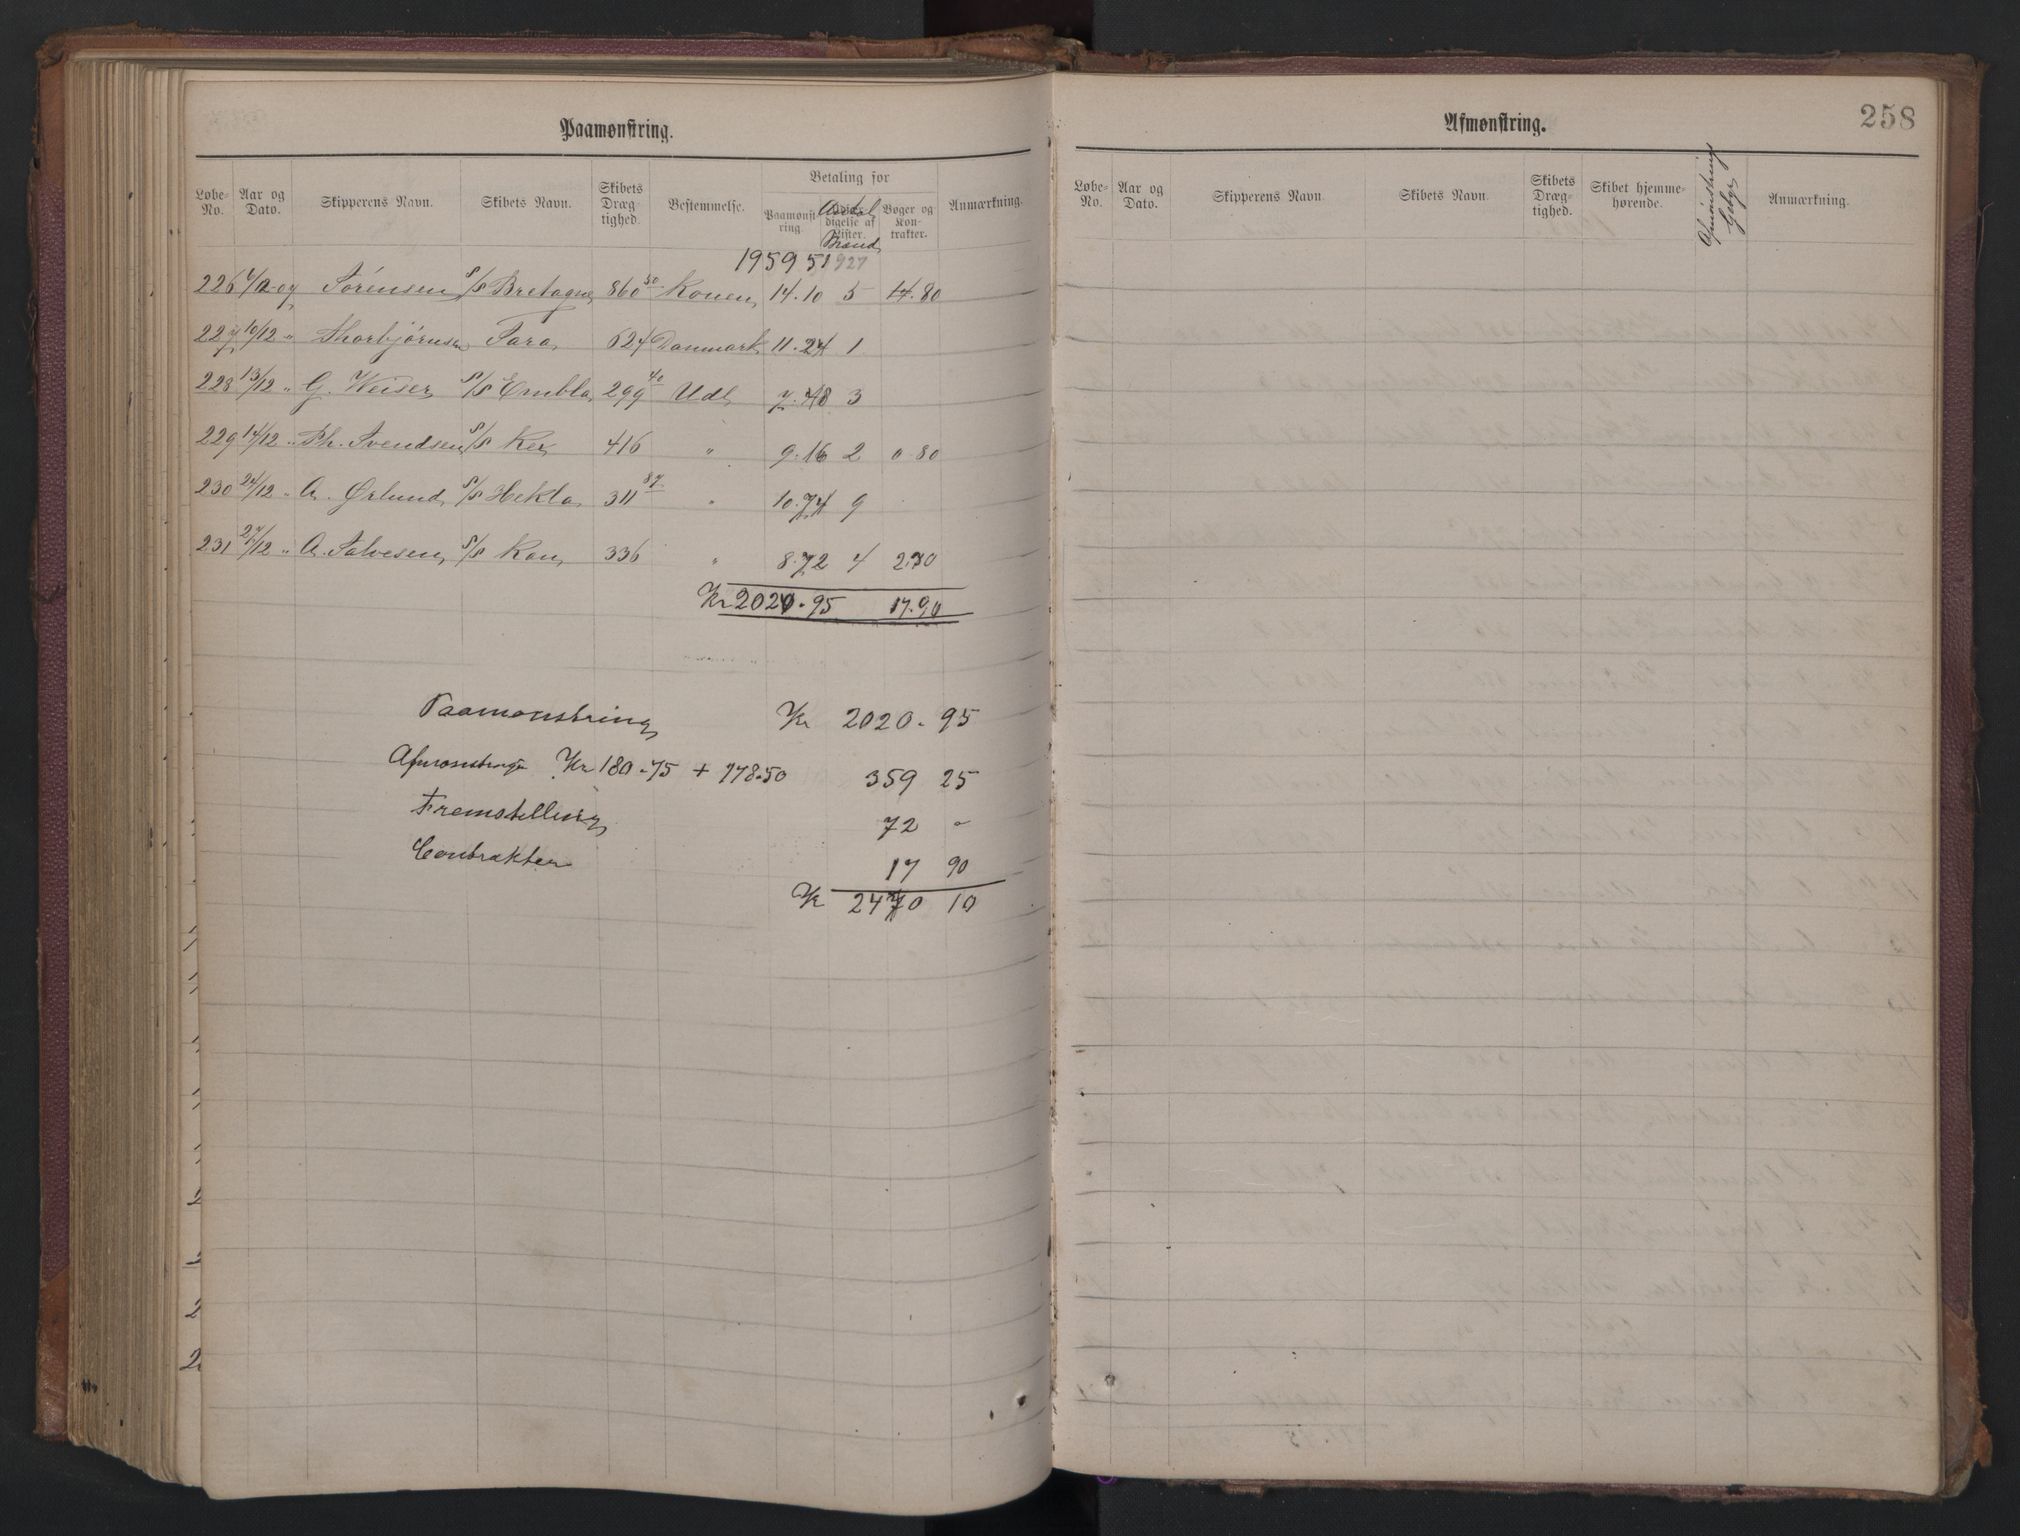 Paamønstring.
Løbe-No. Aar og Dato. Skipperens Navn. Skibets Navn. Skibets Dræg-tighed. Bestemmelse. Betaling for Paamønst-ring. digelse af Lister. Bøger og Kon-trakter. Anmærkning.
Antal Mænd
1959 51 927
226 6/12 07 Sørensen S/S Bretagne 860 50 Rouen 14.10 5 14.80
227 10/12 " Thorbjørnsen Tara 624 Danmark 11.24 1
228 13/12 " G. Weiser S/S Embla 299 40 Udl 7.48 3
229 14/12 " Ph. Svendsen S/S Ker 416 " 9.16 2 0.80
230 24/12 " A. Ørlund S/S Hekla 311 87 " 10.74 9
231 27/12 " A. Salvesen S/S Kan 336 " 8.72 4 2.30
Kr 2020.95 17.90
Paamønstring Kr 2020.95
Afmønstringer Kr 180.75 + 178.50 359 25
Fremstilling 72 -
Contrakter 17 90
Kr 2470 10
Afmønstring. 258
Løbe-No. Aar og Dato. Skipperens Navn. Skibets Navn. Skibets Dræg-tighed. Skibet hjemme-hørende. Afmønstrings Gebyr Anmærkning.